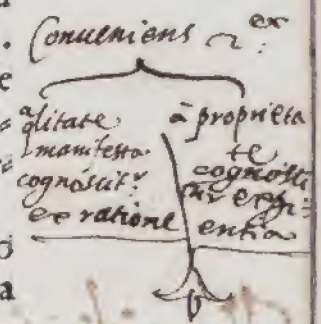 Conueniens ex
qlitate
manifesta
cognoscit~r
ex ratione
a proprieta
te
cognosci
tur expi
entia